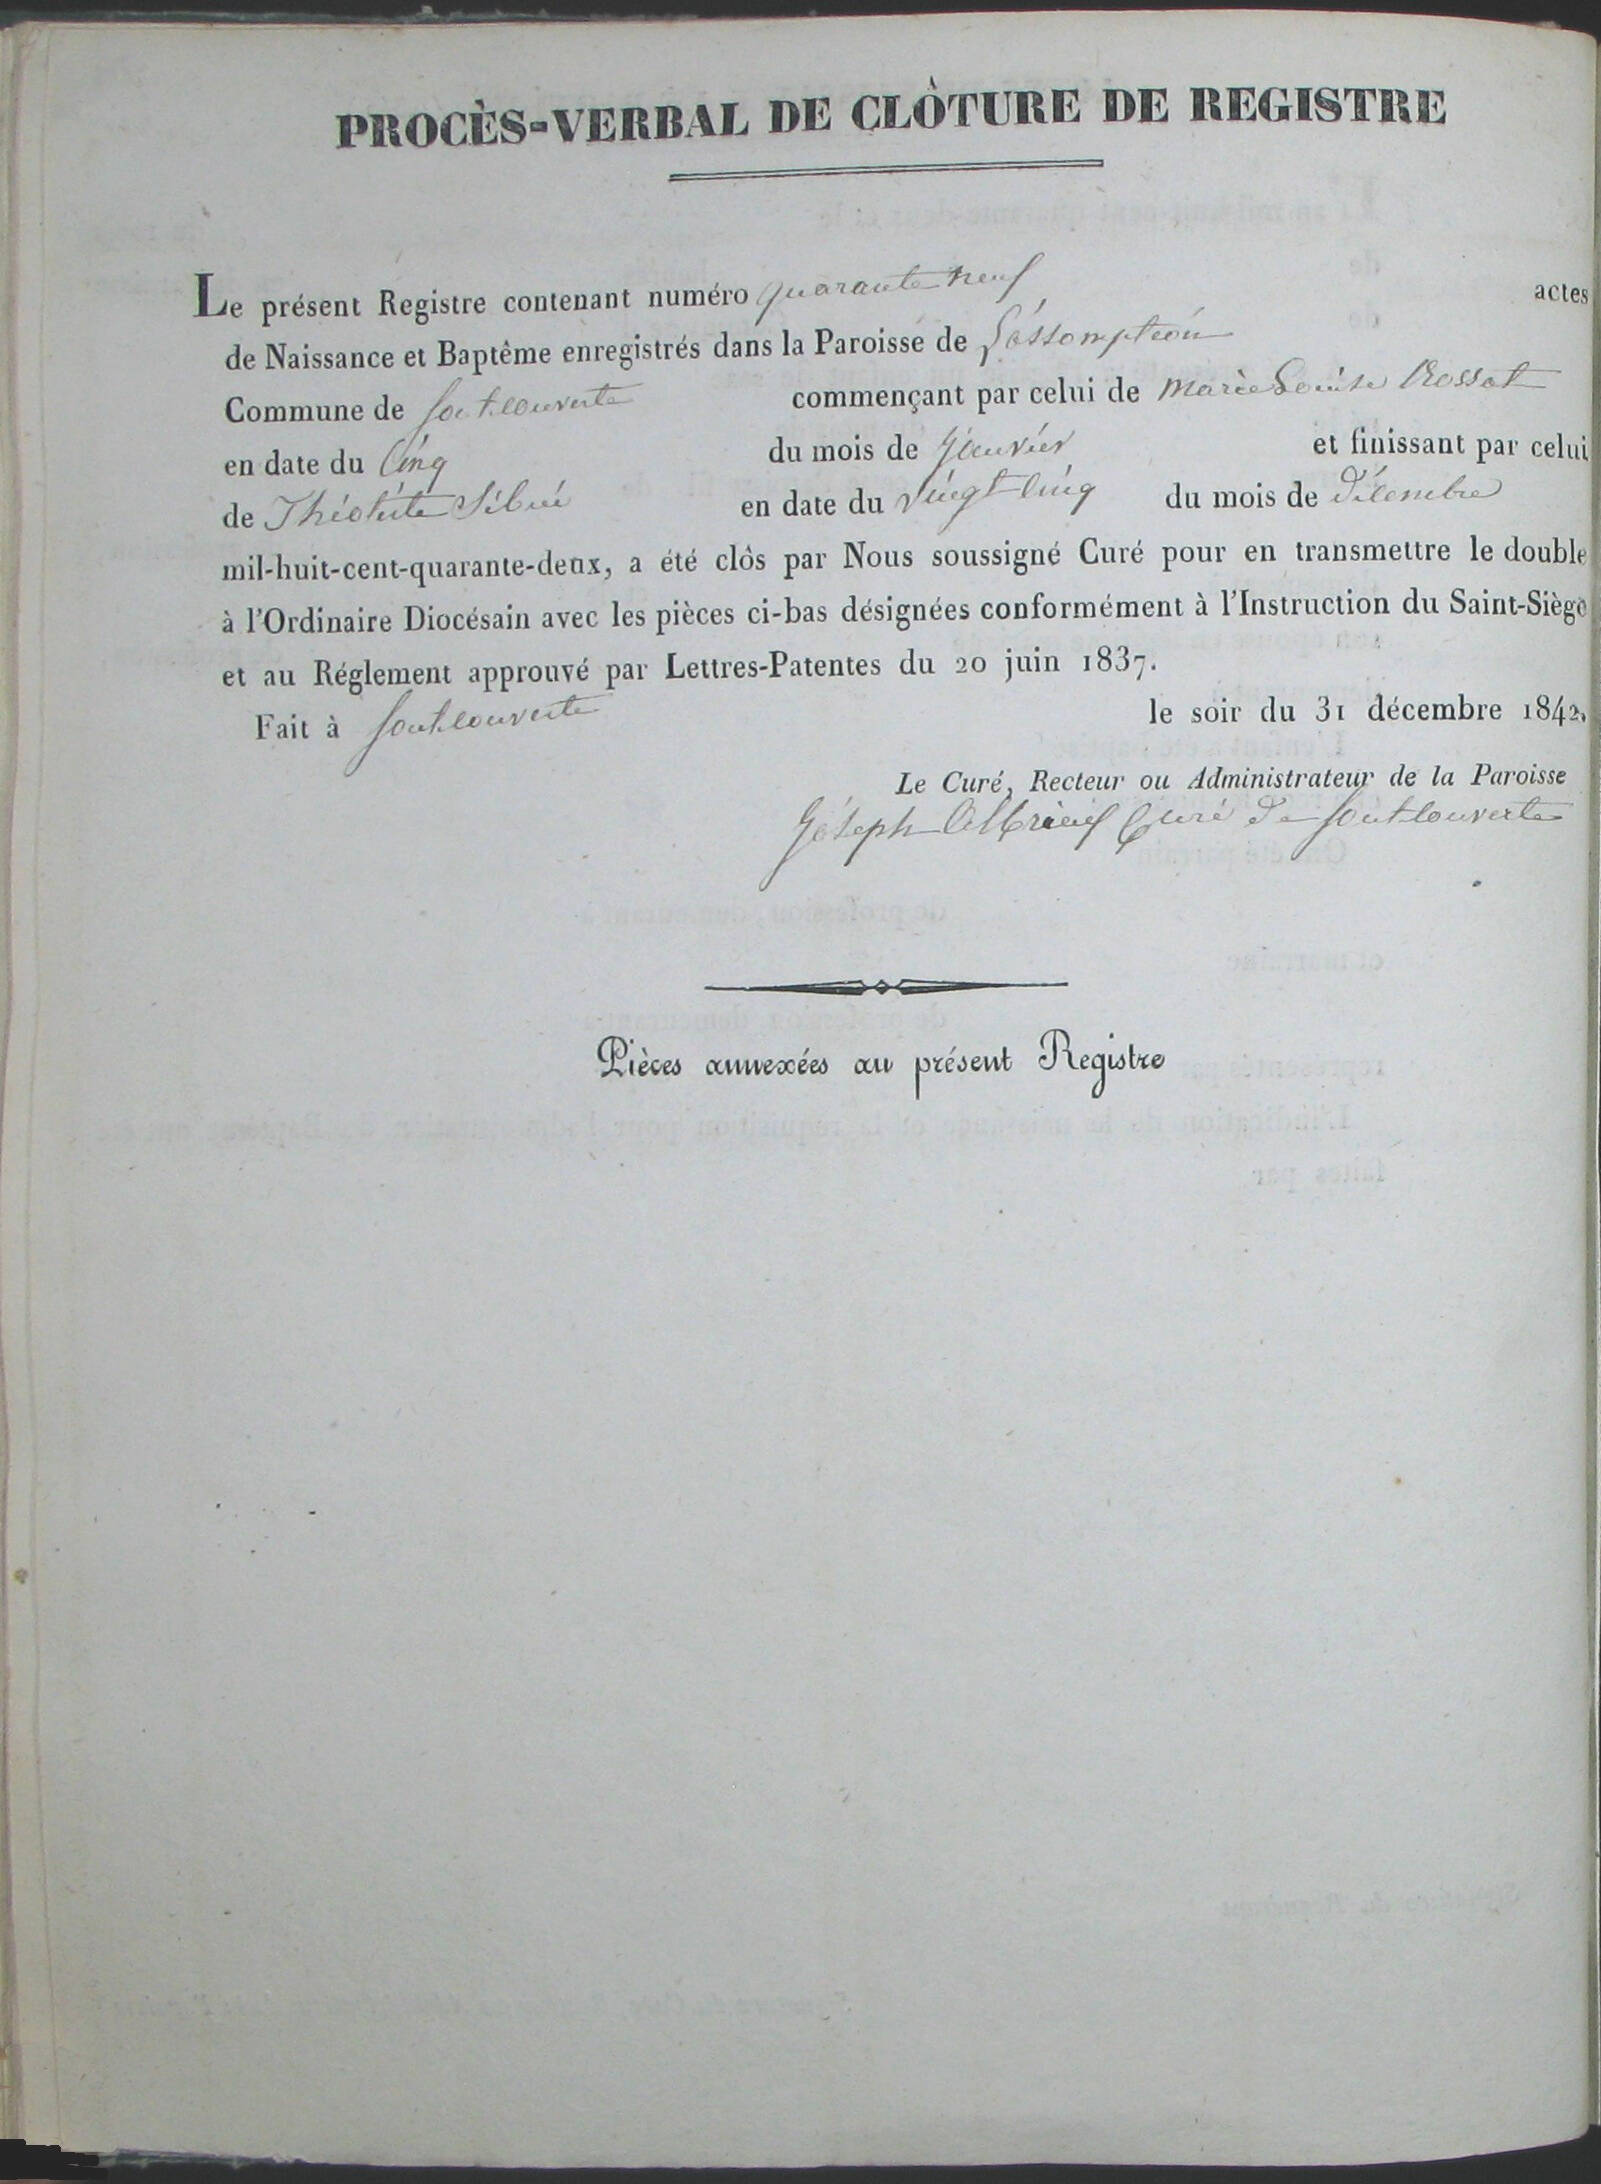 PROCÈS-VERBAL DE CLÔTURE DE REGISTRE
Le présent Registre contenant numéro quarante neuf actes
de Naissance et Baptême enregistrés dans la Paroisse de L'assomption
Commune de fontcouverte commençant par celui de marie Louise Rossat
en date du Cinq du mois de Janvier et finissant par celui
de Théotiste Sibué en date du vingt Cinq du mois de Décembre
mil-huit-cent-quarante-deux, a été clôs par Nous soussigné Curé pour en transmettre le double
à l'Ordinaire Diocésain avec les pièces ci-bas désignées conformément à l'Instruction du Saint-Siège
et au Réglement approuvé par Lettres-Patentes du 20 juin 1837.
Fait à fontcouverte le soir du 31 décembre 1842,
Le Curé, Recteur ou Administrateur de la Paroisse
Joseph Albrieux Curé De fontcouverte
Pièces annexées au présent Registre